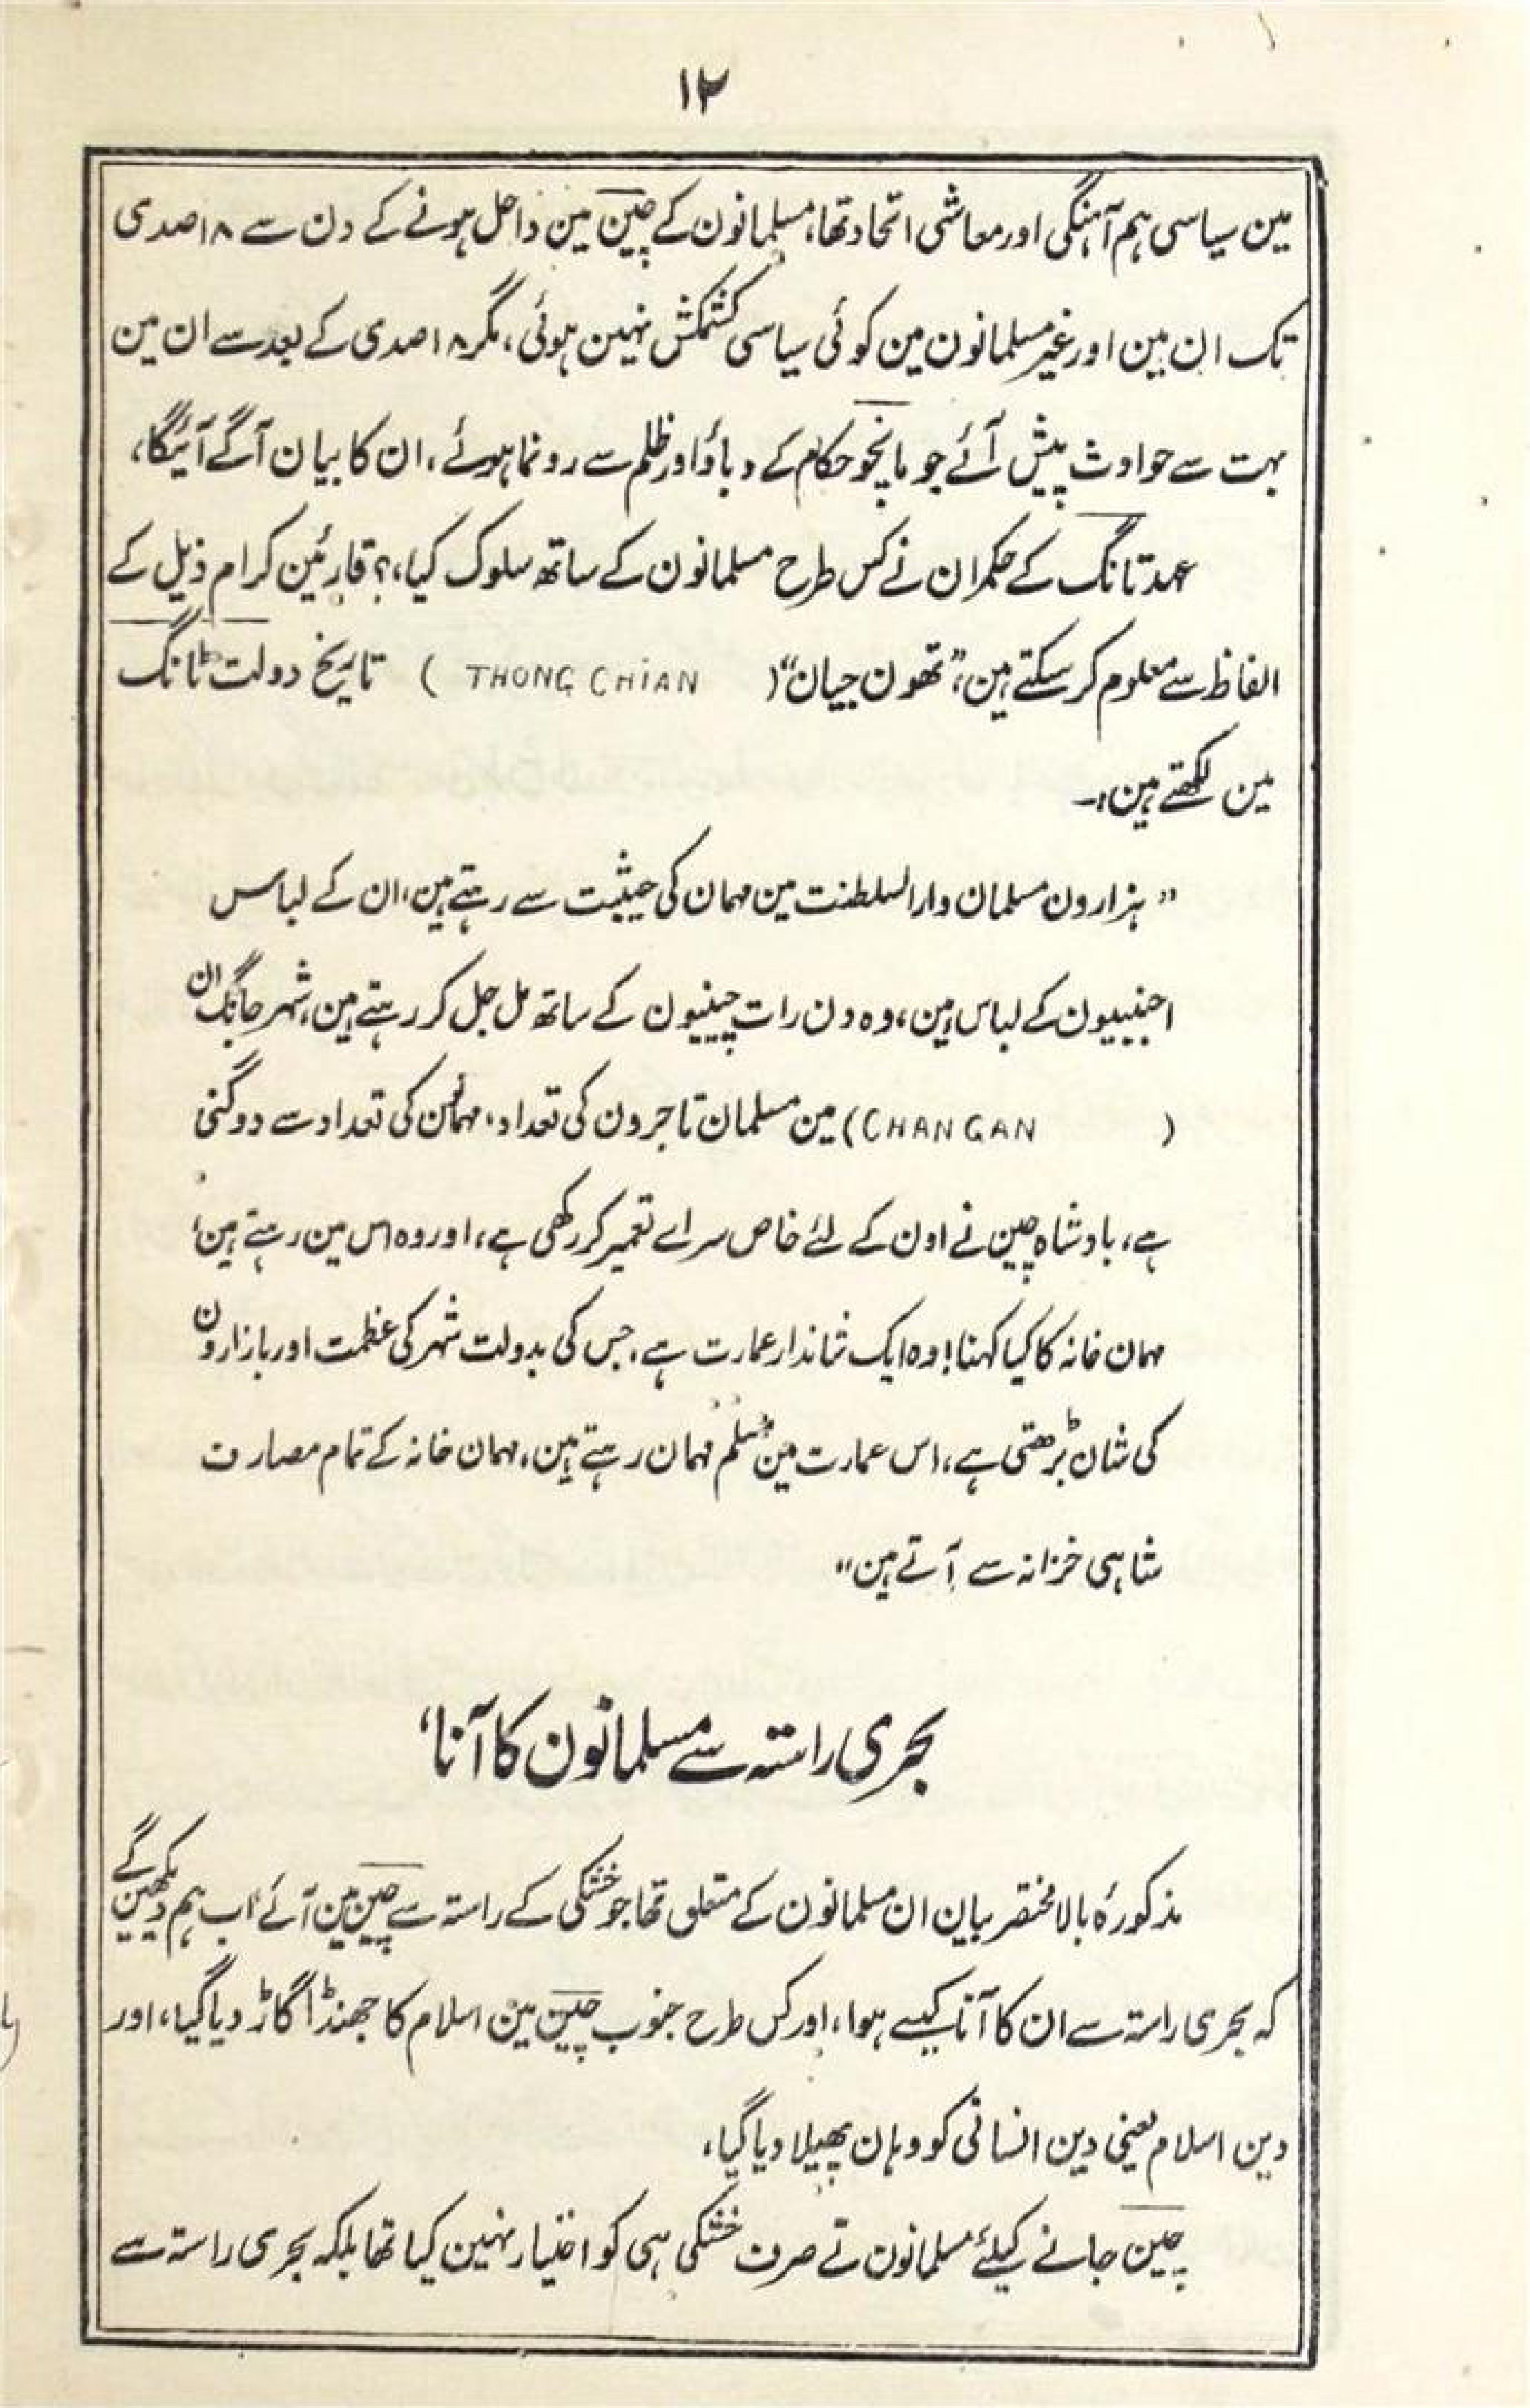 ۱۲
مین سیاسی ہم آہنگی اور معاشی اتحاد تھا، مسلمانون کے چین مین داخل ہونے کے دن سے ۱۸ صدی
تک ان مین اور غیر مسلمانون مین کوئی سیاسی کشمکش نہین ہوئی، مگر ۱۸ صدی کے بعد سے ان مین
بہت سے حوادث پیش آئے جو مانچو حکام کے دباؤ اور ظلم سے رونما ہوئے، ان کا بیان آگے آئیگا،
عہد تانگ کے حکمران نے کس طرح مسلمانون کے ساتھ سلوک کیا،؟ قارئین کرام ذیل کے
الفاظ سے معلوم کر سکتے ہین، "تھون چیان" (THONG CHiAN) تاریخ دولت ٹانگ
مین لکھتے ہین:۔
"ہزارون مسلمان دار السلطنت مین مہمان کی حیثیت سے رہتے ہین، ان کے لباس
اجنبیون کے لباس ہین، وہ دن رات چینیون کے ساتھ مل جل کر رہتے ہین، شہر چانگ ان
(CHANGAN) مین مسلمان تاجرون کی تعداد، مہمانون کی تعداد سے دوگنی
ہے، بادشاہ چین نے اون کے لئے خاص سراے تعمیر کر رکھی ہے، اور وہ اس مین رہتے ہین،
مہمان خانہ کا کیا کہنا! وہ ایک شاندار عمارت ہے، جس کی بدولت شہر کی عظمت اور بازارون
کی شان بڑھتی ہے، اس عمارت مین مسلم مہمان رہتے ہین، مہمان خانہ کے تمام مصارف
شاہی خزانہ سے آتے ہین"
بحری راستہ سے مسلمانون کا آنا،
مذکورۂ بالا مختصر بیان ان مسلمانون کے متعلق تھا جو خشکی کے راستہ سے چین مین آئے اب ہم دیکھین گے
کہ بحری راستہ سے ان کا آنا کیسے ہوا، اور کس طرح جنوب چین مین اسلام کا جھنڈا گاڑ دیا گیا، اور
دین اسلام یعنی دین انسانی کو وہان پھیلا دیا گیا،
چین جانے کیلئے مسلمانون نے صرف خشکی ہی کو اختیار نہین کیا تھا بلکہ بحری راستہ سے